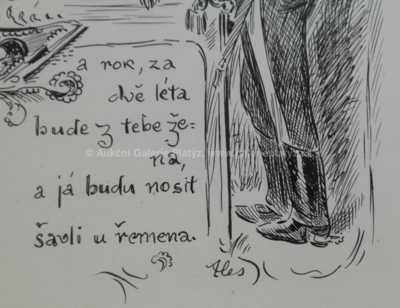 a rok, za
dvě léta
bude z tebe že-
na,
a já budu nosit
šavli u řemena.
Aleš
© Aukční Galerie Platýz, www.